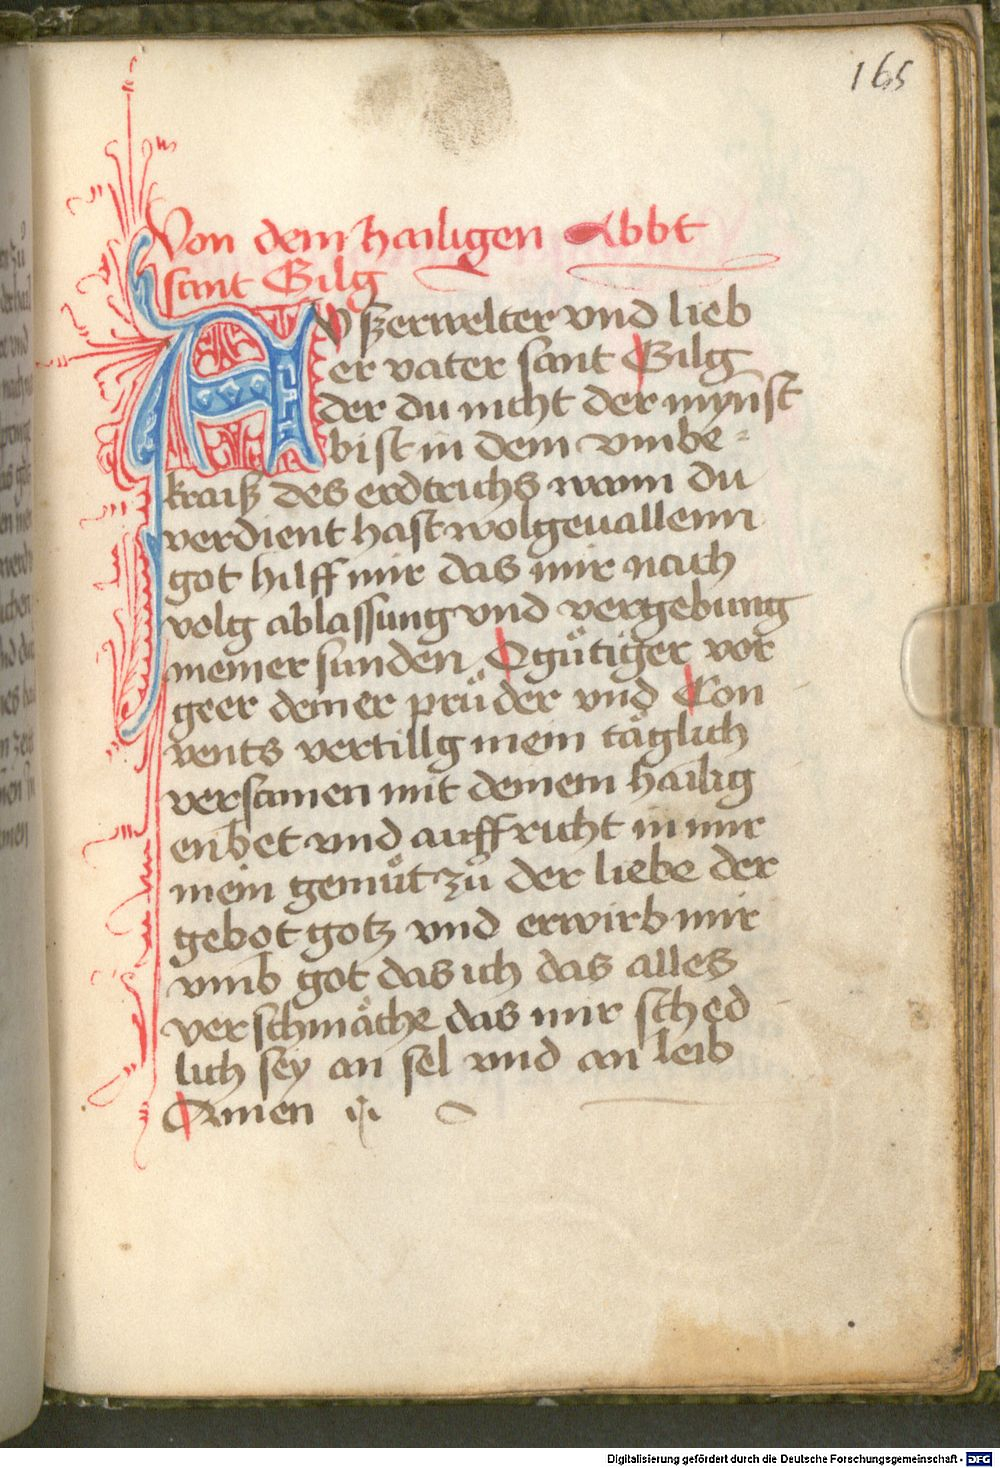 165
Von dem hailigen Abbt
sant Gilg
AVſzerwelter vnd lieb
er vater sant Gilg
der du nicht der mynst
bist in dem vmbe⸗
kraiß des erdtrichs wann du
verdient hast wolgeuallenn
got hilff mir das mir nach
volg ablassung vnd vergebung
meiner sunden O guͤtiger vor
geer deiner pruͤder vnd Con
vents vertillg mein taͤglich
versamen mit deinem hailig
en bet vnd auffricht in mir
mein gemuͤt zů der liebe der
gebot gotz vnd erwirb mir
vmb got das ich das alles
verschmaͤche das mir sched
lich sey an sel vnd an leib
Amen
Digitalisierung gefördert durch die Deutsche Forschungsgemeinschaft - DFG